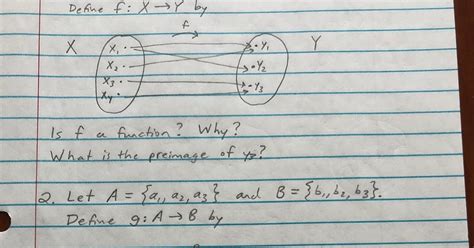 Define f: X → Y by
f
X Y
x₁ y₁
x₂ y₂
x₃ y₃
x₄
Is f a function? Why?
What is the preimage of y₃?
2. Let A = {a₁, a₂, a₃} and B = {b₁, b₂, b₃}.
Define g: A → B by